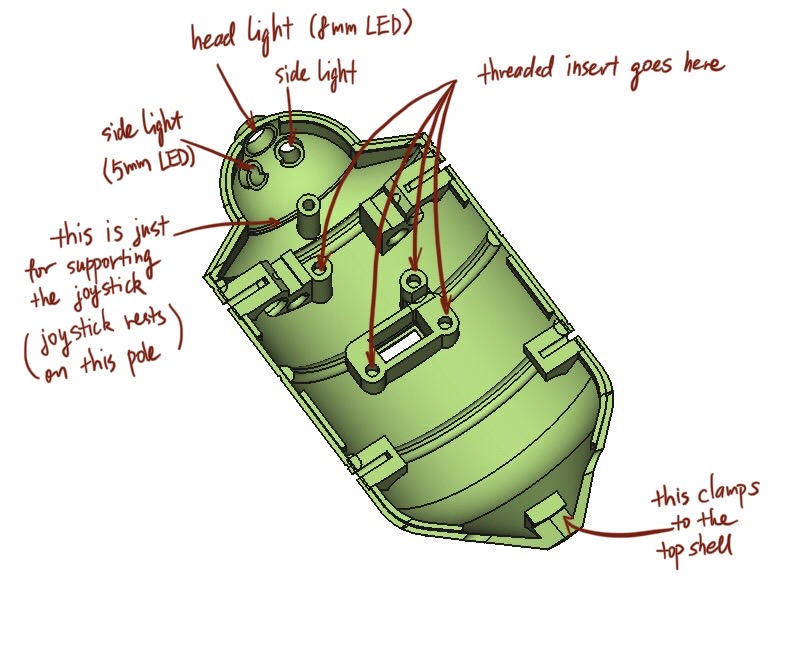 head light (8mm LED)
side light
threaded insert goes here
side light
(5mm LED)
this is just
for supporting
the joystick
(joystick rests
on this pole)
this clamps
to the
top shell